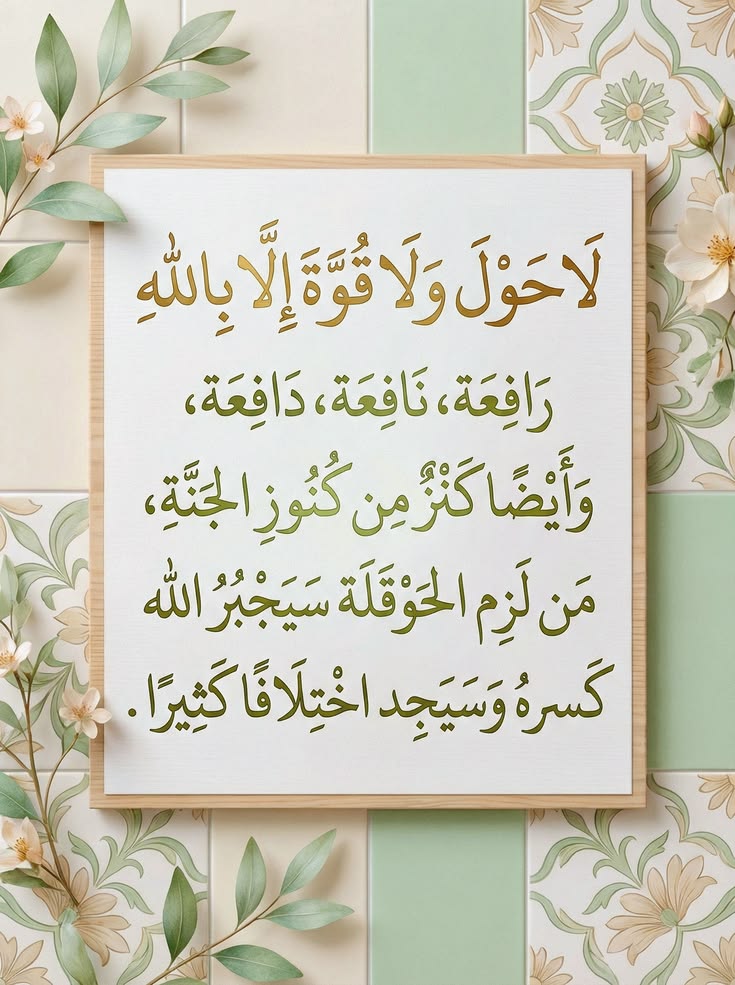 لَا حَوْلَ وَلَا قُوَّةَ إِلَّا بِاللّٰهِ
رَافِعَة، نَافِعَة، دَافِعَة،
وَأَيْضًا كَنْزٌ مِن كُنُوزِ الجَنَّةِ،
مَن لَزِم الحَوْقَلَة سَيَجْبُرُ الله
كَسرهُ وَسَيَجِد اخْتِلَافًا كَثِيرًا.